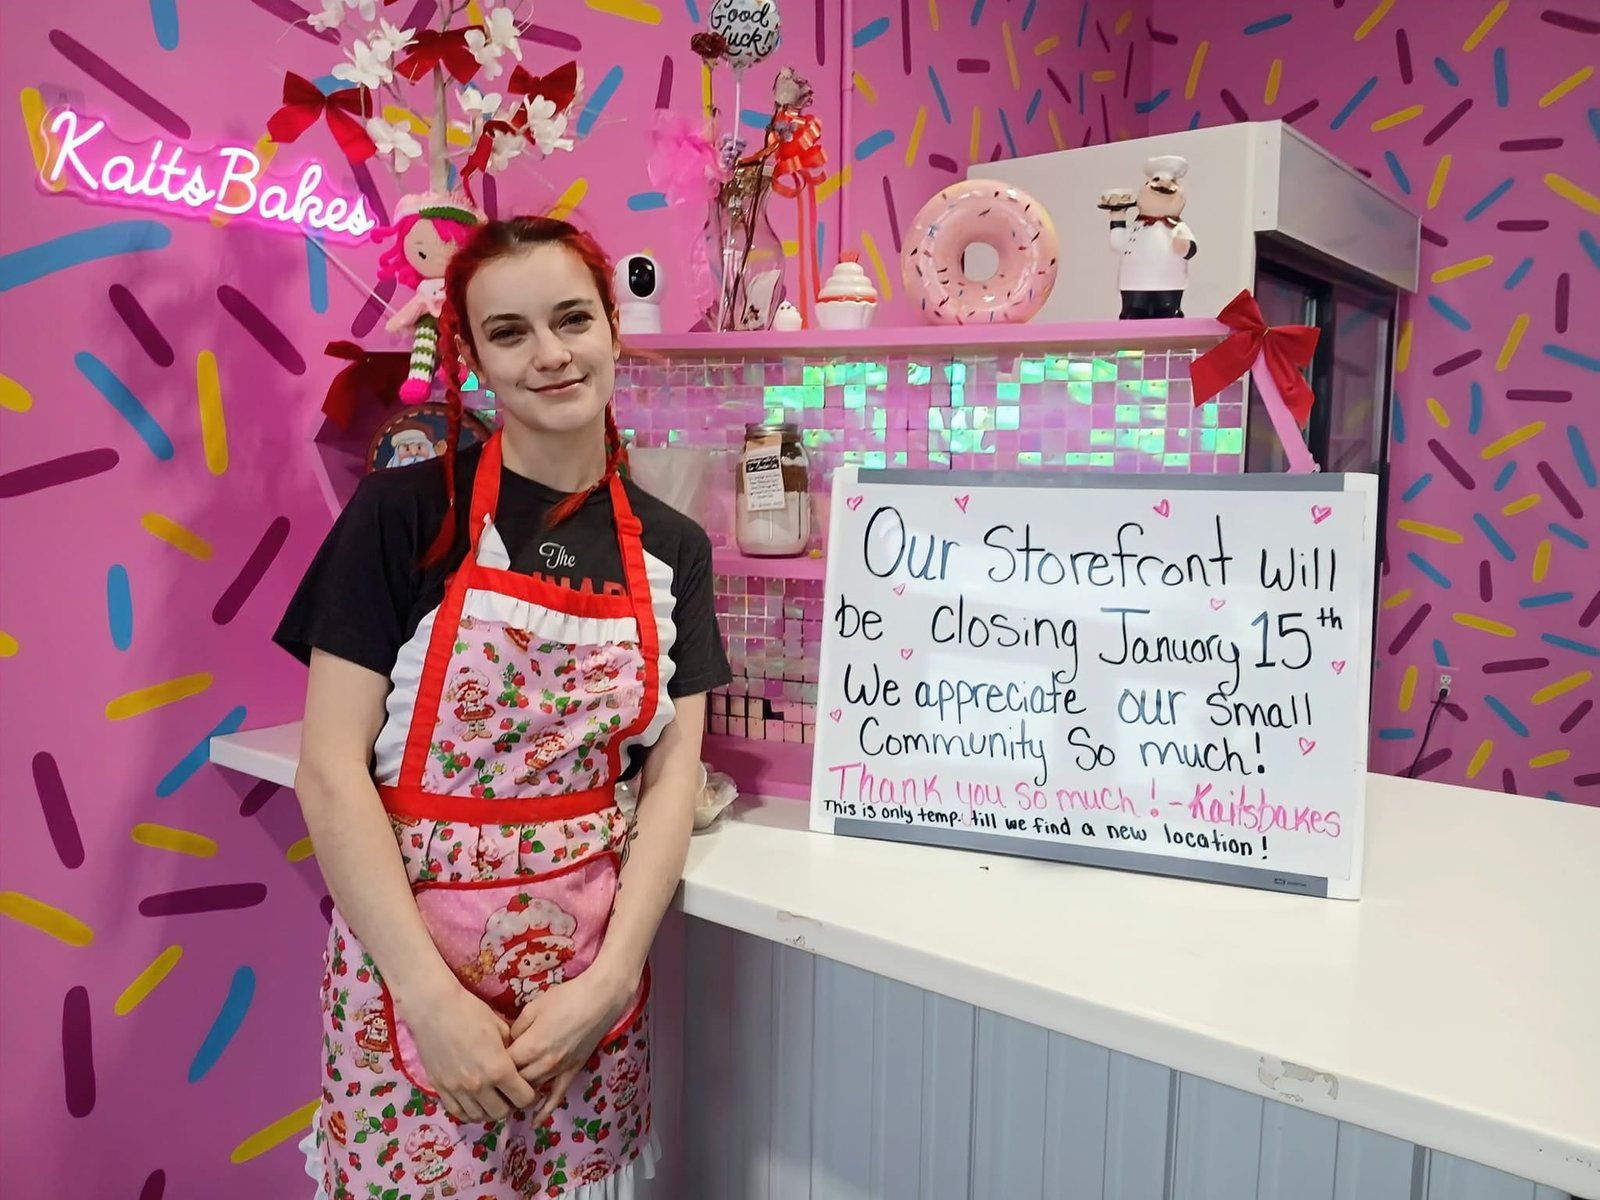 Good
Luck!
KaitsBakes
The
Our Storefront will
be closing January 15th
We appreciate our small
Community So much!
Thank you so much! - Kaitsbakes
This is only temp. till we find a new location!